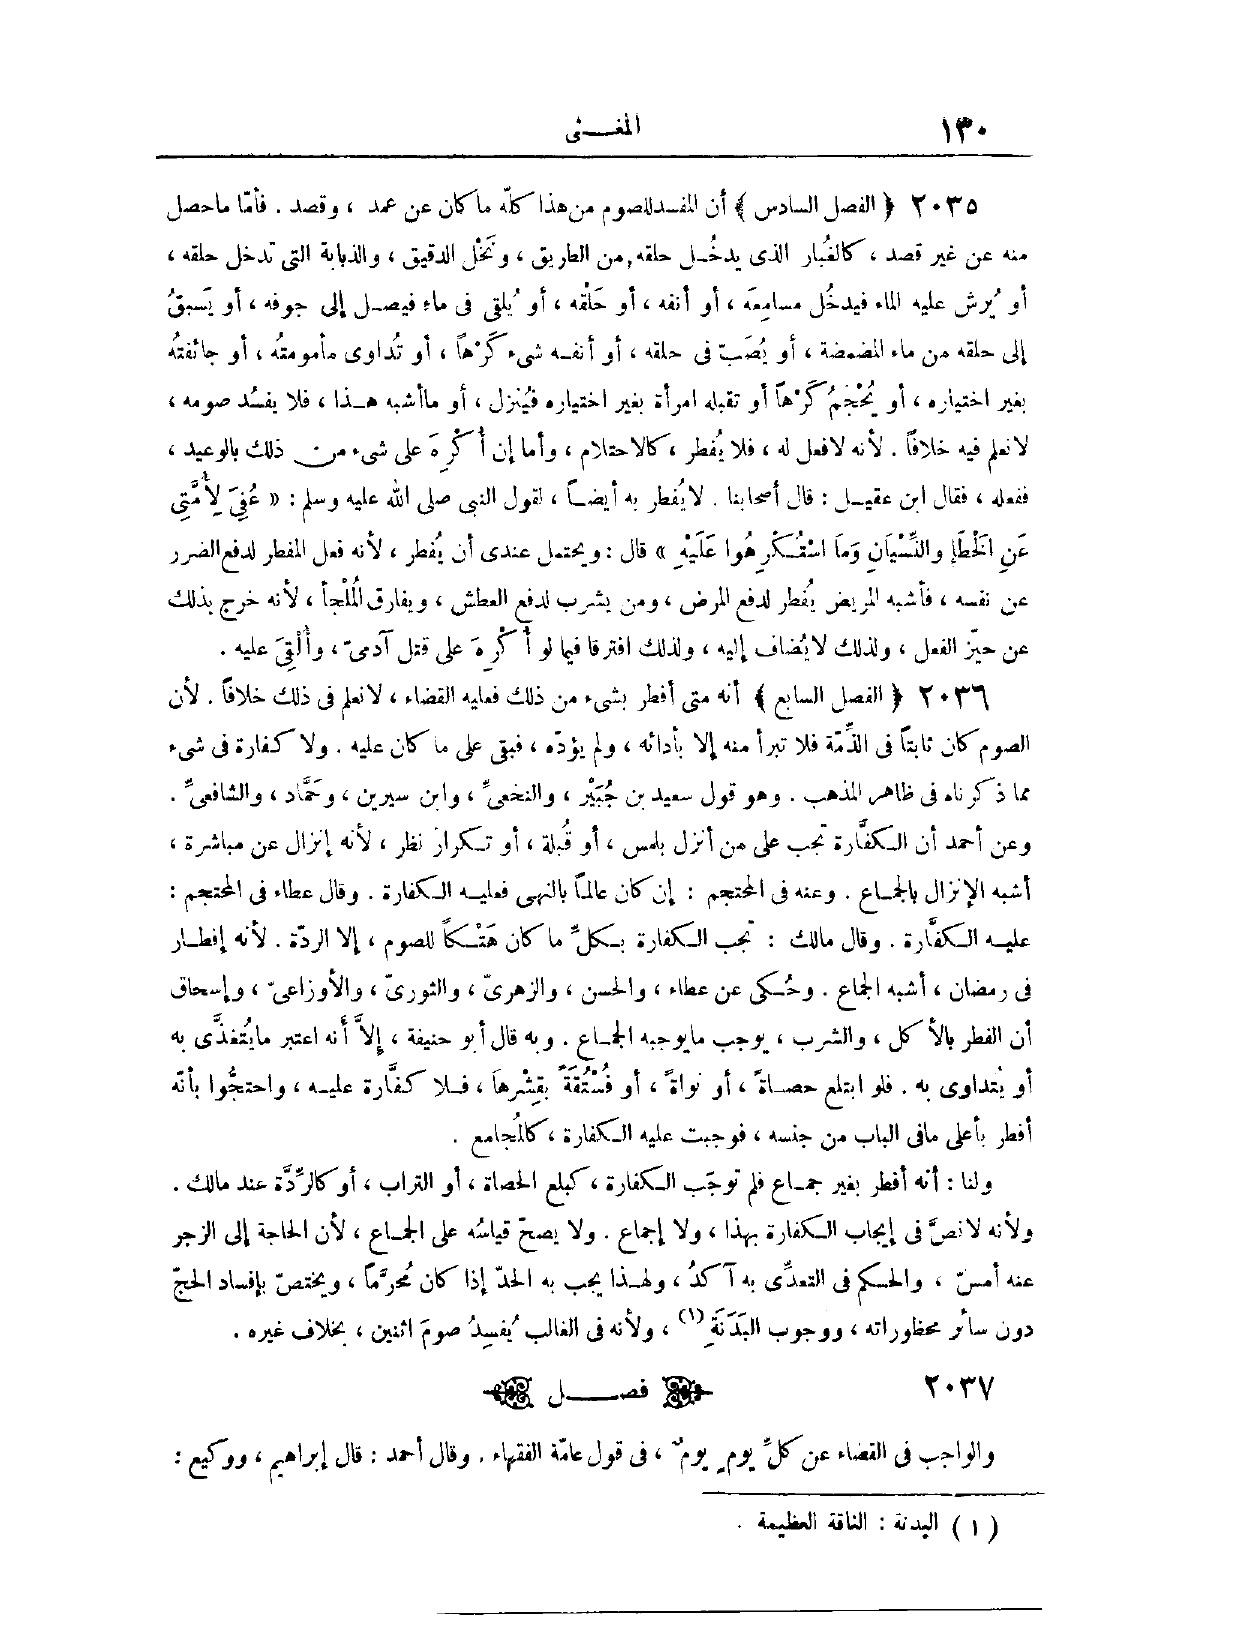 ١٣٠ المغـــنى
٢٠٣٥ ﴿ الفصل السادس ﴾ أن المفسد للصوم من هذا كلّه ما كان عن عمد ، وقصد . فأمّا ما حصل
منه عن غير قصد ، كالغُبار الذى يدخُـل حلقه من الطريق ، ونَخْل الدقيق ، والذبابة التى تدخل حلقه ،
أو يُرش عليه الماء فيدخُل مسامِعَه ، أو أنفه ، أو حَلْقه ، أو يُلقى فى ماء فيصـل إلى جوفه ، أو يَسبقُ
إلى حلقه من ماء المضمضة ، أو يُصَبّ فى حلقه ، أو أنفـه شىء كَرْهاً ، أو تُداوى مأمومتُه ، أو جائفتُه
بغير اختياره ، أو يُحْجَمُ كَرْهاً أو تقبله امرأة بغير اختياره فيُنزل ، أو ما أشبه هـذا ، فلا يفسُد صومه ،
لا نعلم فيه خلافاً . لأنه لا فعل له ، فلا يُفطر ، كالاحتلام ، وأما إن أُكْرِهَ على شىء من ذلك بالوعيد ،
ففعله ، فقال ابن عقيـل : قال أصحابنا . لا يُفطر به أيضـاً ، لقول النبى صلى الله عليه وسلم : « عُفِىَ لِأُمَّتِى
عَنِ الْخَطَإِ والنِّسْيَانِ وَمَا اسْتُـكْرِهُوا عَلَيْهِ » قال : ويحتمل عندى أن يُفطر ، لأنه فعل المفطر لدفع الضرر
عن نفسه ، فأشبه المريض يُفطر لدفع المرض ، ومن يشرب لدفع العطش ، ويفارق الْمُلْجأ ، لأنه خرج بذلك
عن حيّز الفعل ، ولذلك لا يُضاف إليه ، ولذلك افترقا فيما لو أُكْرِهَ على قتل آدمىّ ، وأُلْقِىَ عليه .
٢٠٣٦ ﴿ الفصل السابع ﴾ أنه متى أفطر بشىء من ذلك فعليه القضاء ، لا نعلم فى ذلك خلافاً . لأن
الصوم كان ثابتاً فى الذِّمّة فلا تبرأ منه إلا بأدائه ، ولم يؤدّه ، فبقى على ما كان عليه . ولا كفارة فى شىء
مما ذكرناه فى ظاهر المذهب . وهو قول سعيد بن جُبَيْر ، والنخعىِّ ، وابن سيرين ، وحَمَّاد ، والشافعىِّ .
وعن أحمد أن الـكفَّارة تجب على من أنزل بلمس ، أو قُبلة ، أو تـكرار نظر ، لأنه إنزال عن مباشرة ،
أشبه الإنزال بالجمـاع . وعنه فى المحتجم : إن كان عالماً بالنهى فعليـه الـكفارة . وقال عطاء فى المحتجم :
عليـه الـكفَّارة . وقال مالك : تجب الـكفارة بـكلِّ ما كان هَتْـكاً للصوم ، إلا الردّة . لأنه إفطـار
فى رمضان ، أشبه الجماع . وحُـكى عن عطاء ، والحسن ، والزهرىّ ، والثورىّ ، والأوزاعىّ ، وإسحاق
أن الفطر بالأكل ، والشرب ، يوجب ما يوجبه الجمـاع . وبه قال أبو حنيفة ، إلاَّ أنه اعتبر ما يُتغذَّى به
أو يُتداوى به . فلو ابتلع حصـاةً ، أو نواةً ، أو فُسْتُقَةً بقِشْرهاَ ، فـلا كفَّارة عليـه ، واحتجُّوا بأنّه
أفطر بأعلى مافى الباب من جنسه ، فوجبت عليه الـكفارة ، كالْمُجامع .
ولنا : أنه أفطر بغير جمـاع فلم توجَب الـكفارة ، كبلع الحصاة ، أو التراب ، أو كالرِّدَّة عند مالك .
ولأنه لا نصَّ فى إيجاب الـكفارة بهذا ، ولا إجماع . ولا يصحّ قياسُه على الجمـاع ، لأن الحاجة إلى الزجر
عنه أمسّ ، والحـكم فى التعدِّى به آكدُ ، ولهـذا يجب به الحدّ إذا كان مُحرَّماً ، ويختصّ بإفساد الحجّ
دون سائر محظوراته ، ووجوب البَدَنَةِ (١) ، ولأنه فى الغالب يُفسِدُ صومَ اثنين ، بخلاف غيره .
٢٠٣٧ فصـــل
والواجب فى القضاء عن كلِّ يوم يومٌ ، فى قول عامّة الفقهاء . وقال أحمد : قال إبراهيم ، ووكيع :
( ١ ) البدنة : الناقة العظيمة .